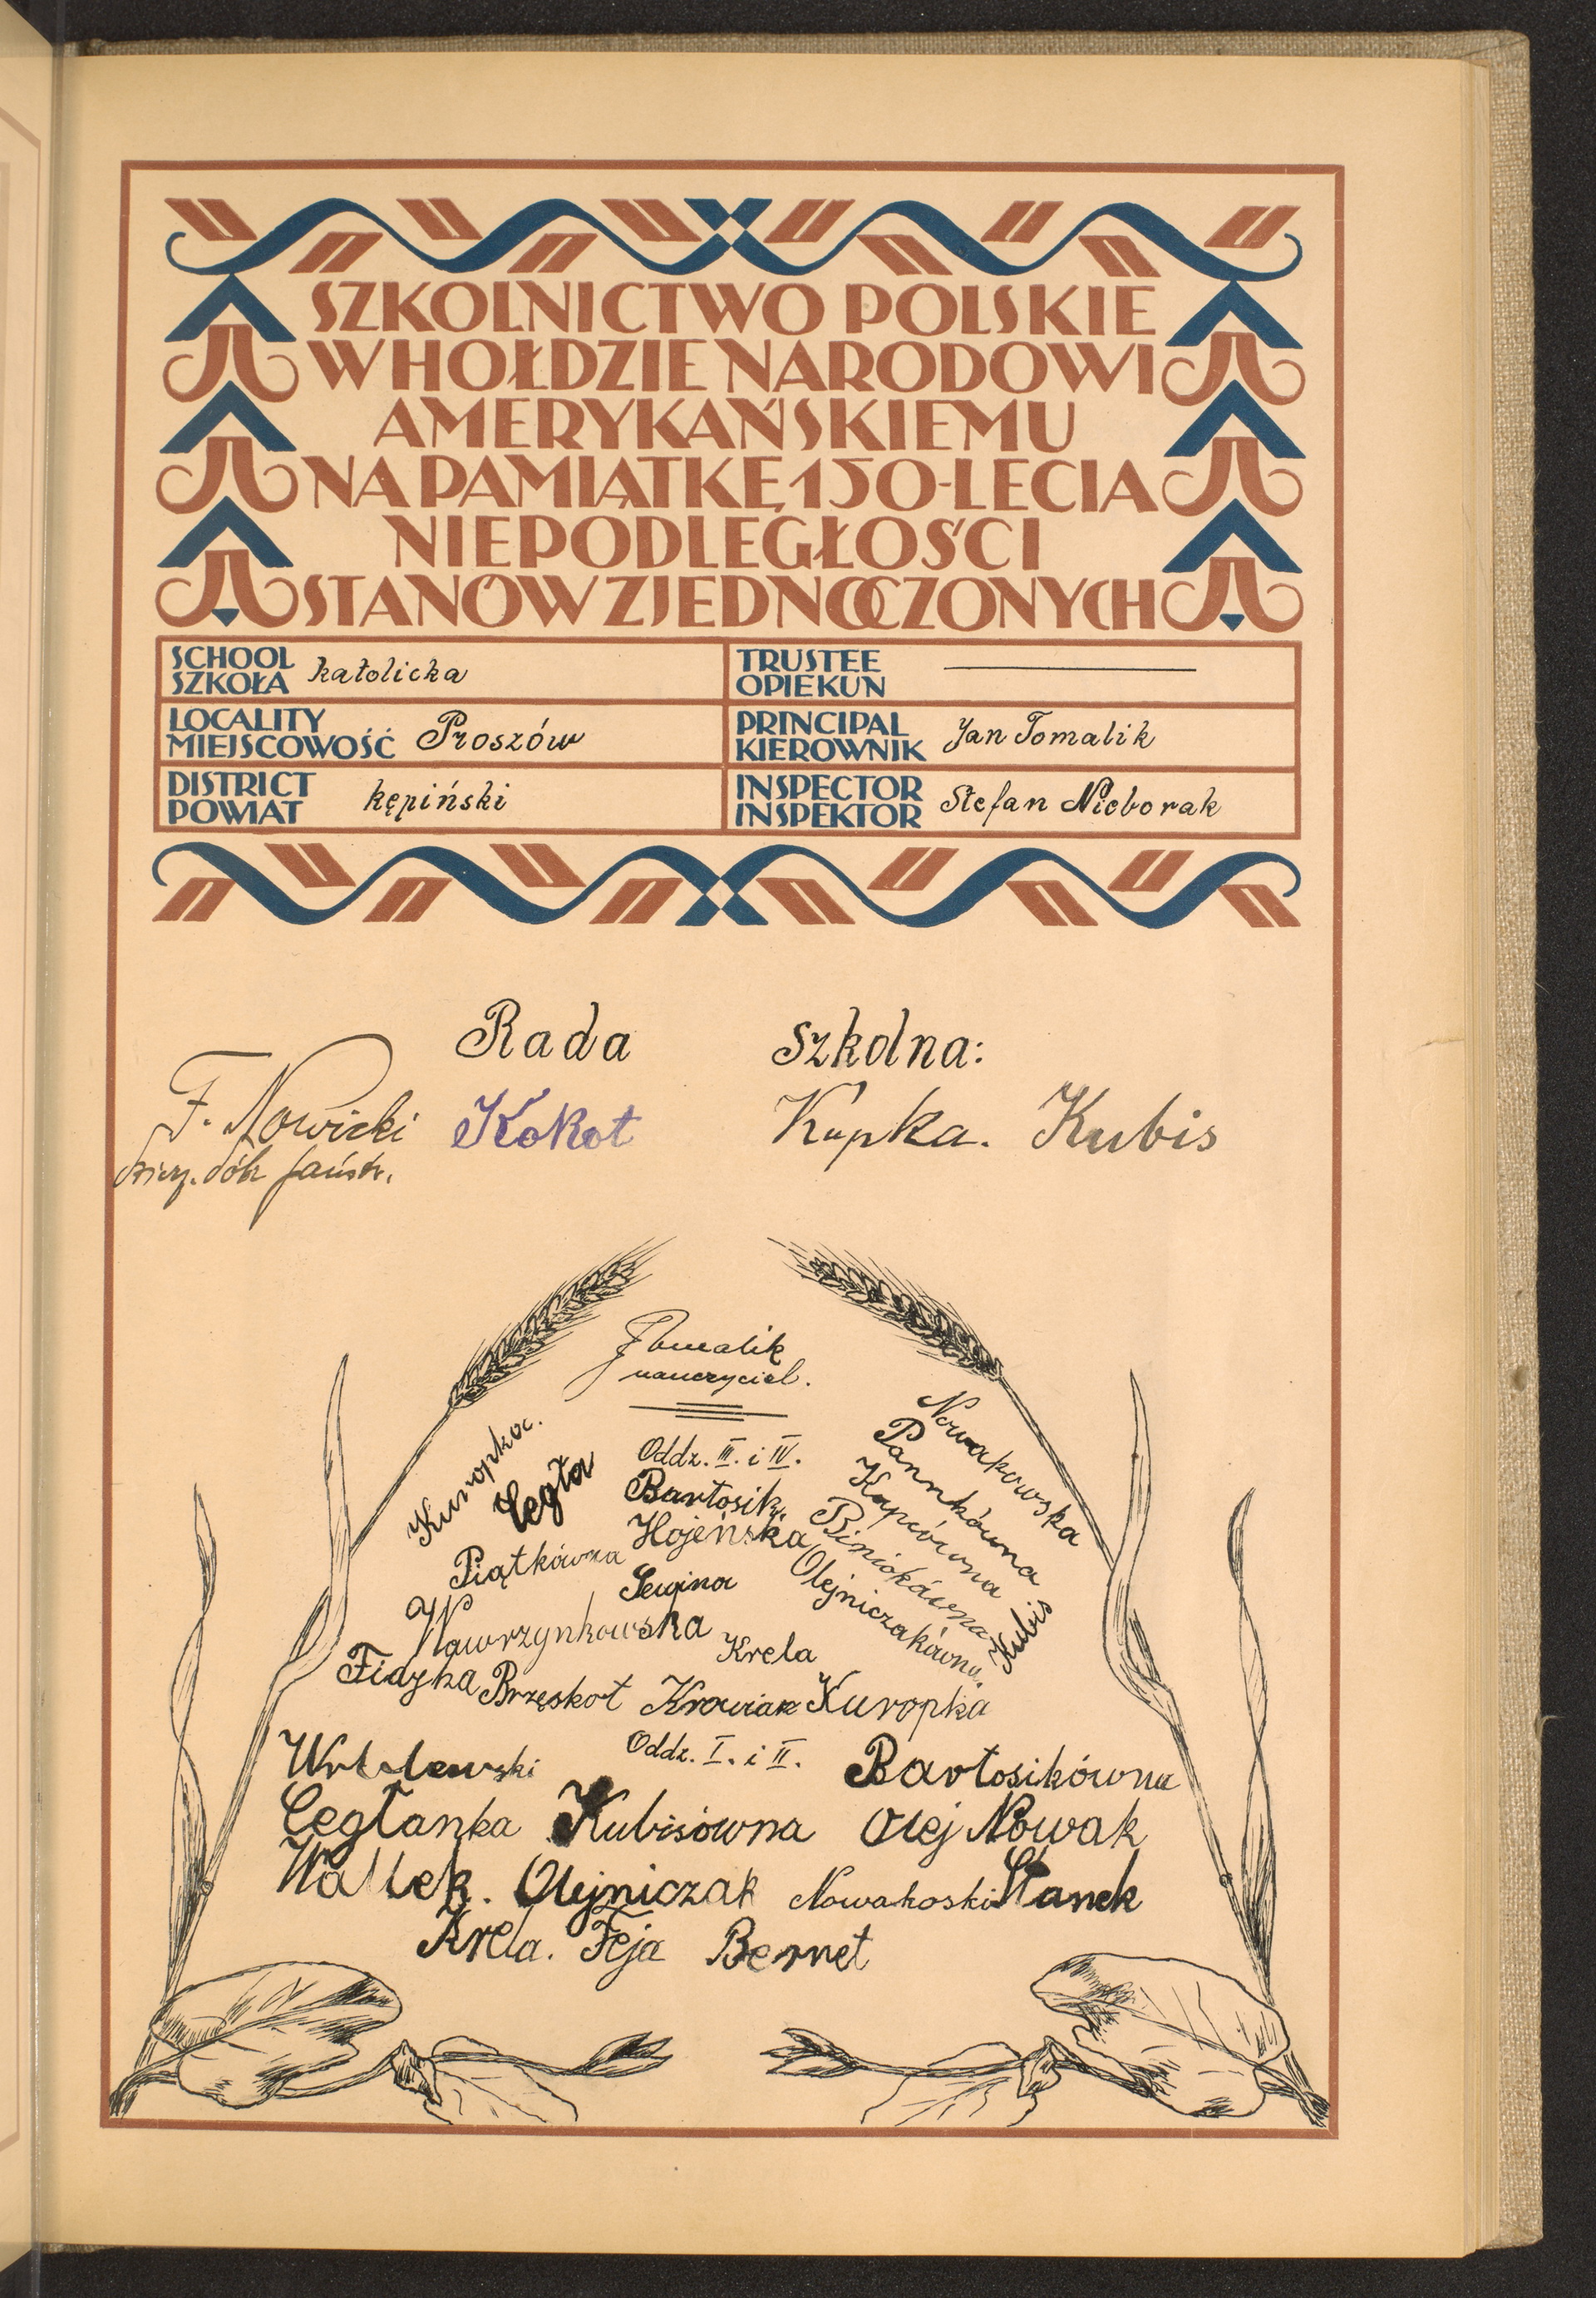 SZKOLNICTWO POLSKIE
W HOŁDZIE NARODOWI
AMERYKAŃSKIEMU
NA PAMIĄTKĘ 150-LECIA
NIEPODLEGŁOŚCI
STANÓW ZJEDNOCZONYCH
SCHOOL
SZKOŁA katolicka
TRUSTEE
OPIEKUN
LOCALITY
MIEJSCOWOŚĆ Proszów
PRINCIPAL
KIEROWNIK Jan Tomalik
DISTRICT
POWIAT kępiński
INSPECTOR
INSPEKTOR Stefan Nieborak
Rada szkolna:
F. Nowicki Kokot Kupka. Kubis
dzierż. dóbr państw.
JTomalik
nauczyciel.
Oddz. III. i IV.
Kuropka.
Cegła
Bartosik
Nowakowska
Pannkówna
Kupcówna
Biniokówna
Olejniczakówna
Kubis
Hojeńska
Piątkówna
Wawrzynkowska
Krela
Fidyka Brzęskot Krowiak Kuropka
Oddz. I. i II.
Bartosikówna
Cegłanka Kubisówna Olej Nowak
Wallek. Olejniczak Nowakoski Stanek
Krela. Feja Bernet